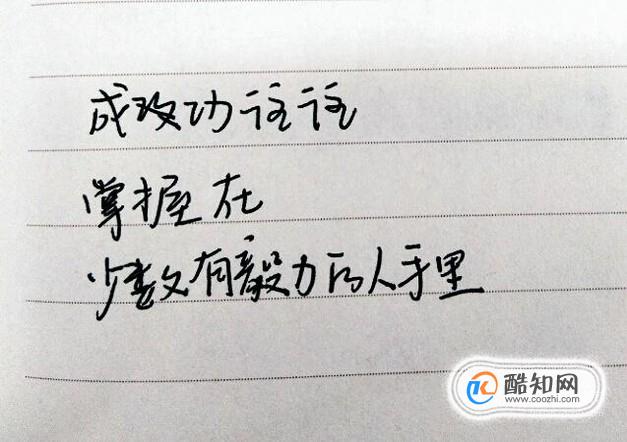 成攻功往往
掌握在
少数有毅力的人手里
酷知网
www.coozhi.com